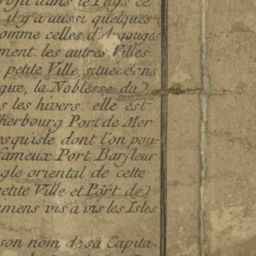 dans le Pays ce
il y a aussi quelques
comme celles d'Argouges
ment. les autres Villes
petite Ville, située sur
que, la Noblesse du
s les hivers. elle est
herbourg Port de Mer
esqu'isle dont l'on peu
fameux Port Barfleur
gle oriental de cette
petite Ville et Port de
mens vis a vis les Isles
son nom de sa Capita-